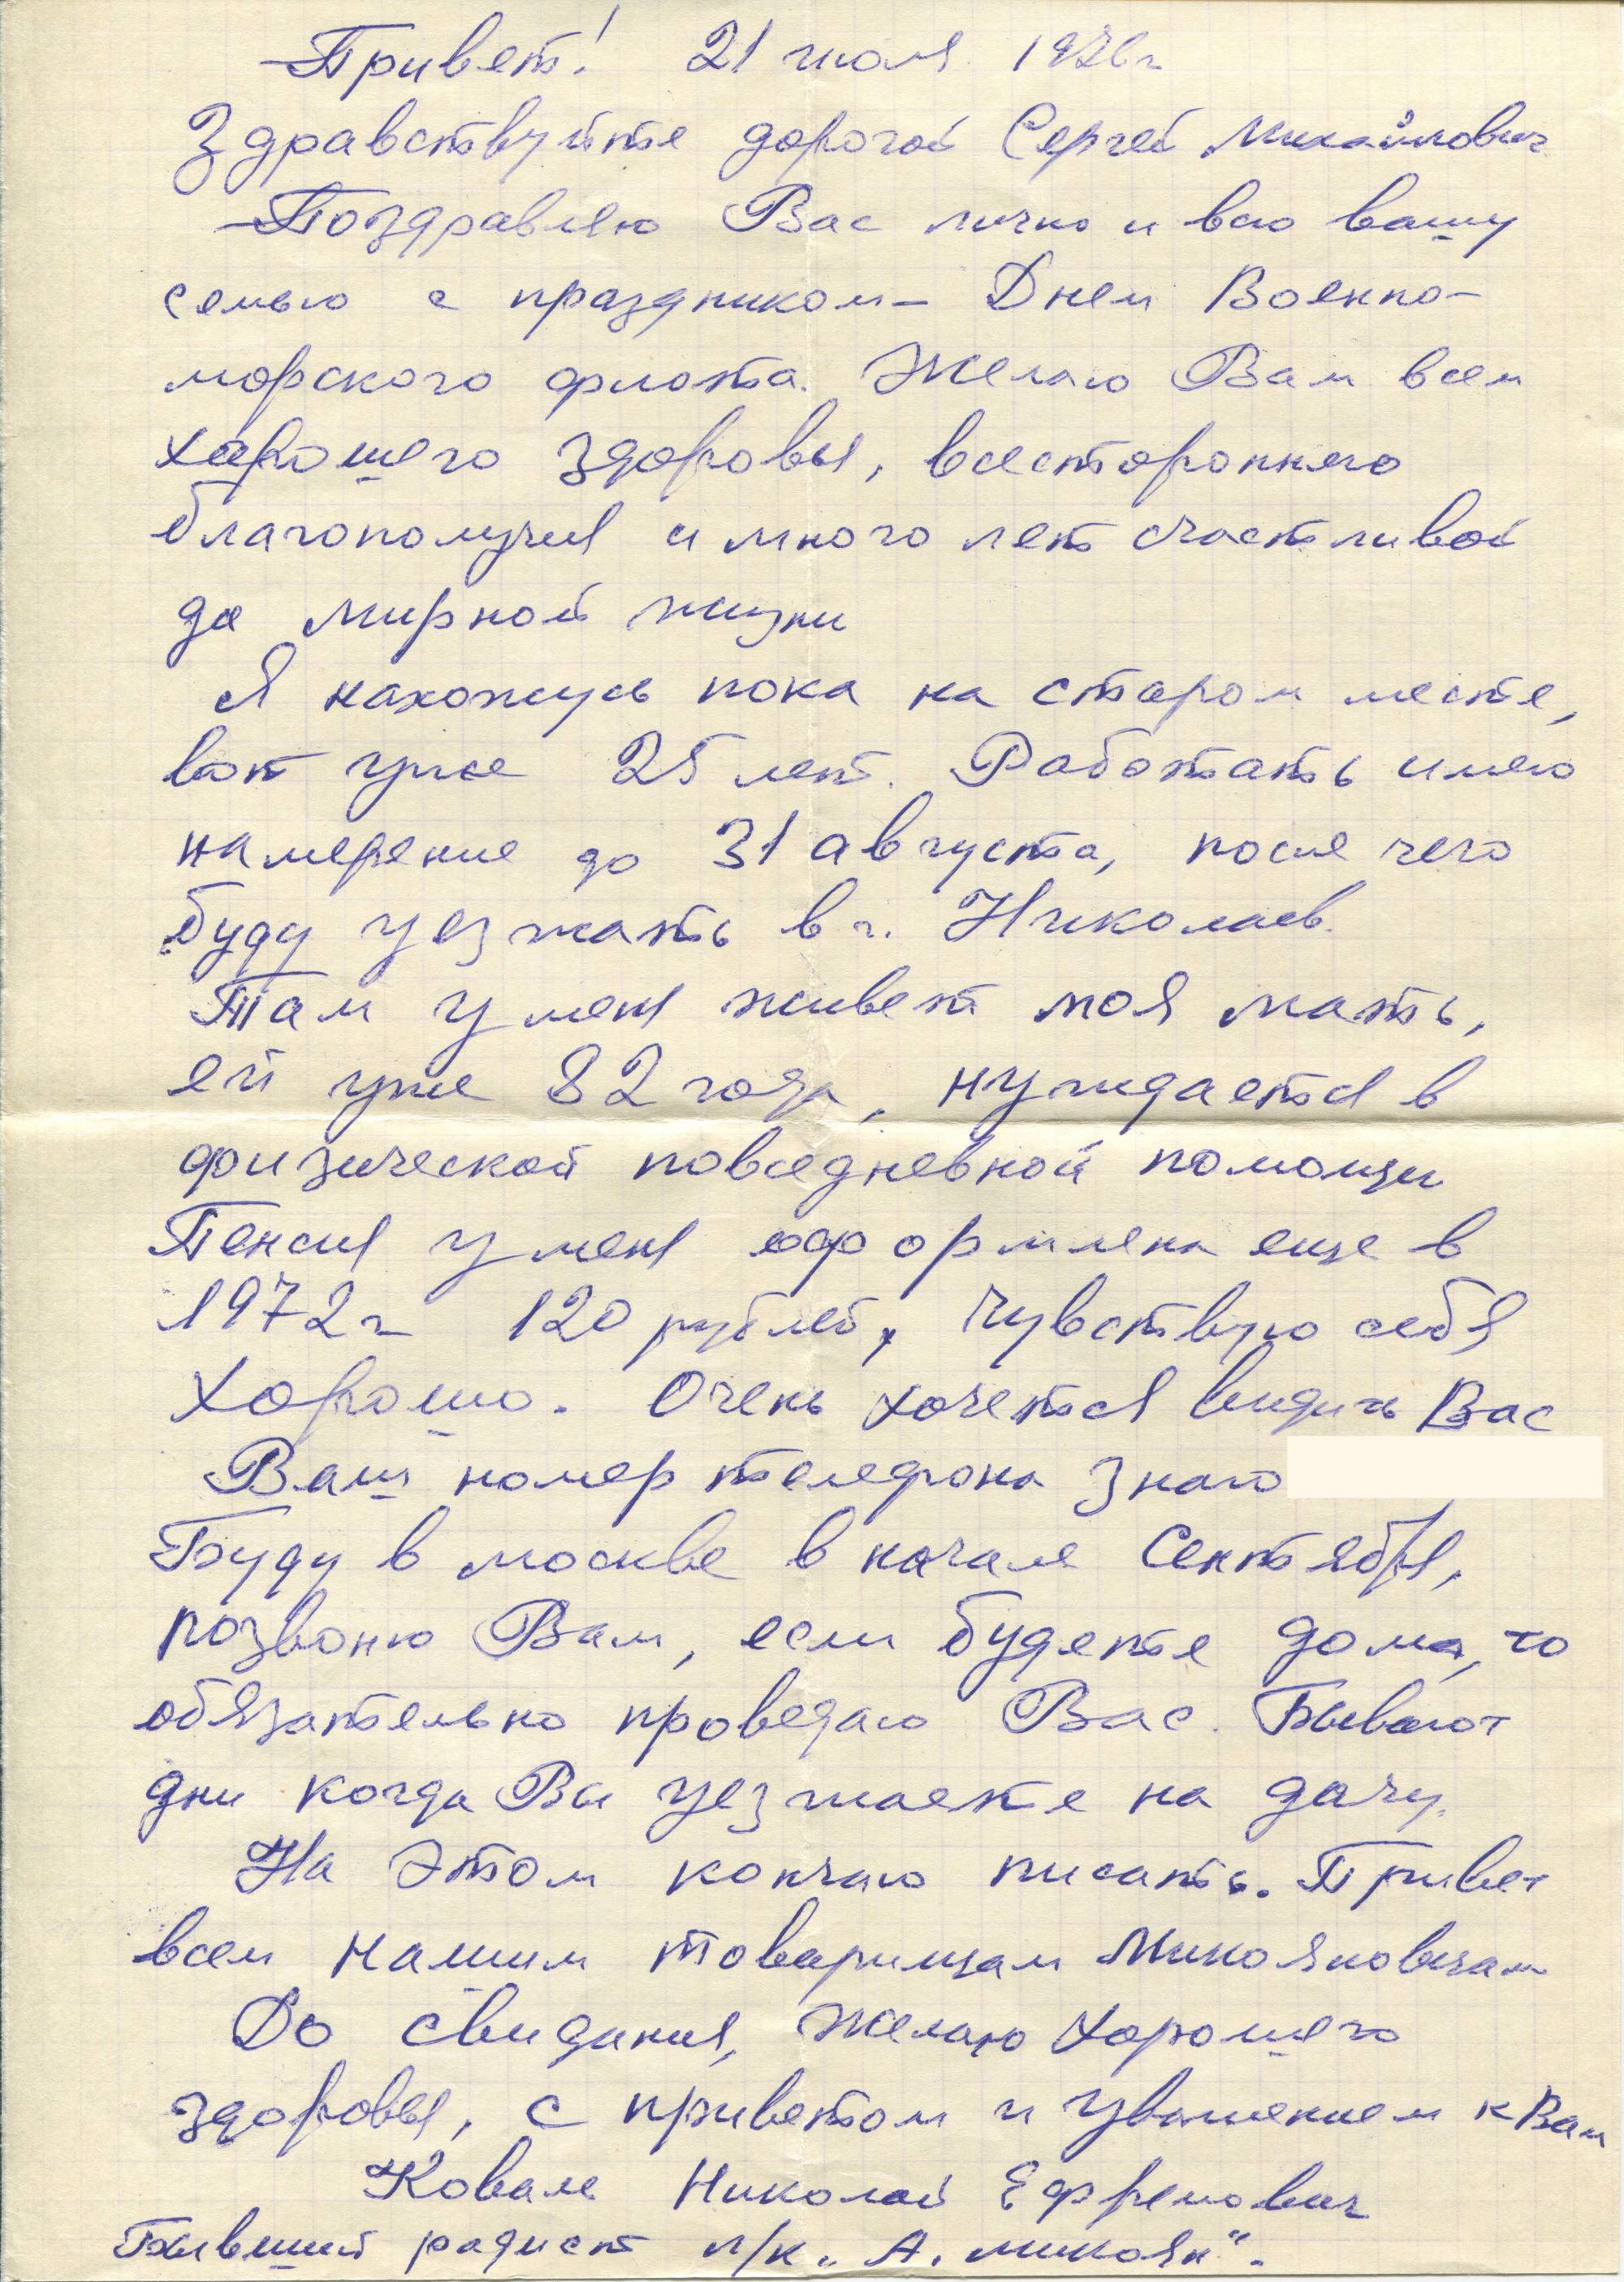 Привет! 21 июля 1976г
Здравствуйте дорогой Сергей Михайлович
Поздравляю Вас лично и всю вашу
семью с праздником – Днем Военно-
морского флота. Желаю Вам всем
харошего здоровья, всестороннего
благополучия и много лет счастливой
да мирной жизни
Я нахожусь пока на старом месте,
вот уже 25 лет. Работать имею
намерение до 31 августа, после чего
буду уезжать в г. Николаев.
Там у меня живет моя мать,
ей уже 82 года, нуждается в
физической повседневной помощи
Пенсия у меня оформлена еще в
1972г 120 рублей, чувствую себя
хорошо. Очень хочется видить Вас
Ваш номер телефона знаю
Буду в москве в начале Сентября,
позвоню Вам, если будете дома, то
обязательно проведаю Вас. Бывают
дни когда Вы уезжаете на дачу.
На этом кончаю писать. Привет
всем нашим товарищам Микояновцам
До свидания, желаю хорошего
здоровья, с приветом и уважением к Вам
Коваль Николай Ефремович
Бывший радист л/к „А. микоян".